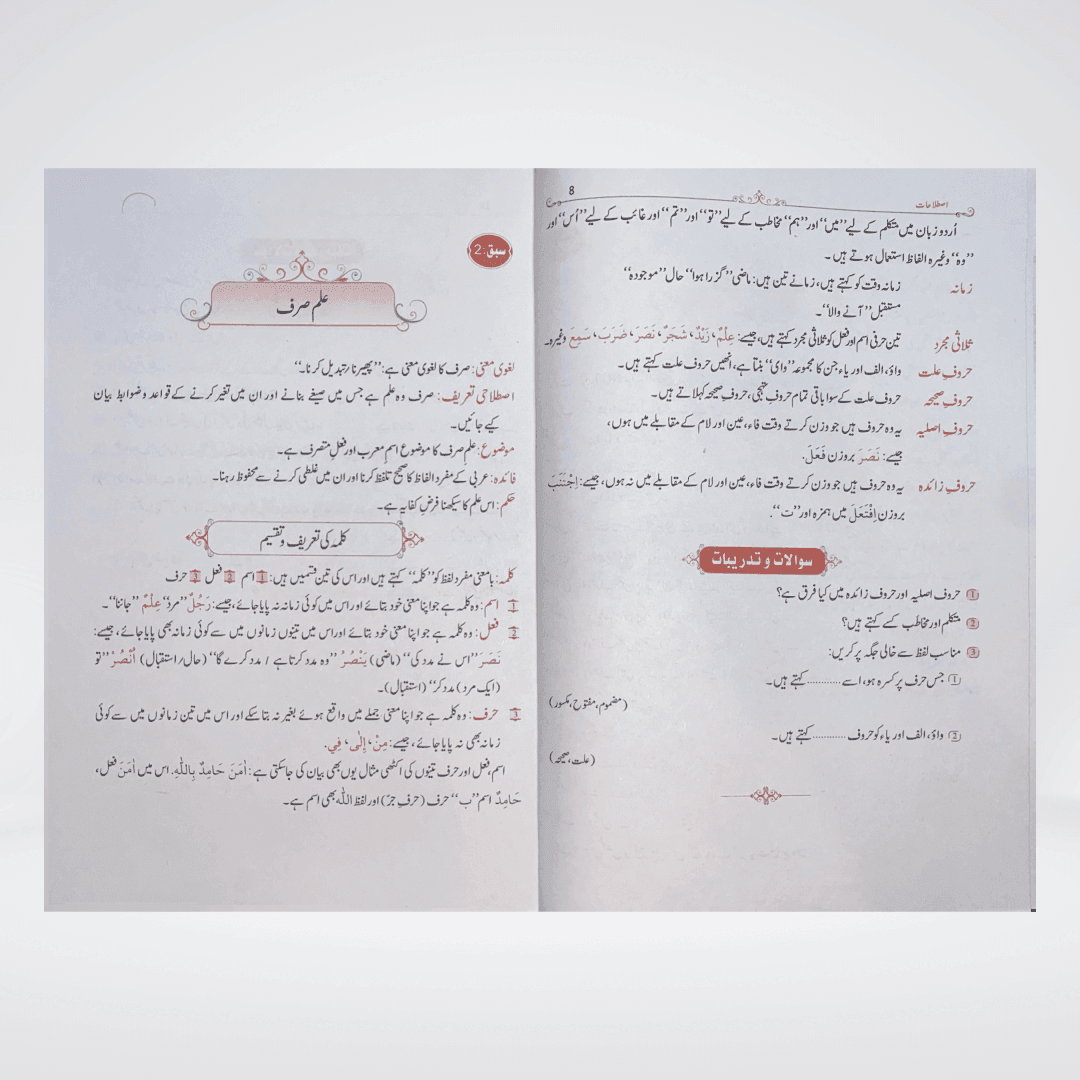 اصطلاحات
8
اُردو زبان میں متکلم کے لیے ’’میں‘‘ اور ’’ہم‘‘ مخاطب کے لیے ’’تو‘‘ اور ’’تم‘‘ اور غائب کے لیے ’’اُس‘‘ اور
’’وہ‘‘ وغیرہ الفاظ استعمال ہوتے ہیں۔
زمانہ زمانہ وقت کو کہتے ہیں، زمانے تین ہیں: ماضی ’’گزرا ہوا‘‘ حال ’’موجودہ‘‘
مستقبل ’’آنے والا‘‘۔
ثلاثی مجرد تین حرفی اسم اور فعل کو ثلاثی مجرد کہتے ہیں، جیسے: عِلْمٌ، زَیْدٌ، شَجَرٌ، نَصَرَ، ضَرَبَ، سَمِعَ وغیرہ۔
حروفِ علت واؤ، الف اور یاء جن کا مجموعہ ’’وای‘‘ بنتا ہے، انھیں حروف علت کہتے ہیں۔
حروفِ صحیحہ حروف علت کے سوا باقی تمام حروفِ تہجی، حروفِ صحیحہ کہلاتے ہیں۔
حروفِ اصلیہ یہ وہ حروف ہیں جو وزن کرتے وقت فاء، عین اور لام کے مقابلے میں ہوں،
جیسے: نَصَرَ بروزن فَعَلَ.
حروفِ زائدہ یہ وہ حروف ہیں جو وزن کرتے وقت فاء، عین اور لام کے مقابلے میں نہ ہوں، جیسے: اِجْتَنَبَ
بروزن اِفْتَعَلَ میں ہمزہ اور ’’ت‘‘۔
سوالات و تدریبات
1 حروف اصلیہ اور حروف زائدہ میں کیا فرق ہے؟
2 متکلم اور مخاطب کسے کہتے ہیں؟
3 مناسب لفظ سے خالی جگہ پر کریں:
1 جس حرف پر کسرہ ہو، اسے ............ کہتے ہیں۔
(مضموم، مفتوح، مکسور)
2 واؤ، الف اور یاء کو حروف ........... کہتے ہیں۔
(علت، صحیحہ)
سبق: 2
علم صرف
لغوی معنی: صرف کا لغوی معنی ہے: ’’پھیرنا/ تبدیل کرنا۔‘‘
اصطلاحی تعریف: صرف وہ علم ہے جس میں صیغے بنانے اور ان میں تغیر کرنے کے قواعد و ضوابط بیان
کیے جائیں۔
موضوع: علم صرف کا موضوع اسم معرب اور فعل متصرف ہے۔
فائدہ: عربی کے مفرد الفاظ کا صحیح تلفظ کرنا اور ان میں غلطی کرنے سے محفوظ رہنا۔
حکم: اس علم کا سیکھنا فرضِ کفایہ ہے۔
کلمہ کی تعریف و تقسیم
کلمہ: بامعنی مفرد لفظ کو ’’کلمہ‘‘ کہتے ہیں اور اس کی تین قسمیں ہیں: 1 اسم 2 فعل 3 حرف
1 اسم: وہ کلمہ ہے جو اپنا معنی خود بتائے اور اس میں کوئی زمانہ نہ پایا جائے، جیسے: رَجُلٌ ’’مرد‘‘ عِلْمٌ ’’جاننا‘‘۔
2 فعل: وہ کلمہ ہے جو اپنا معنی خود بتائے اور اس میں تینوں زمانوں میں سے کوئی زمانہ بھی پایا جائے، جیسے:
نَصَرَ ’’اس نے مدد کی‘‘ (ماضی) یَنْصُرُ ’’وہ مدد کرتا ہے / مدد کرے گا‘‘ (حال/ استقبال) اُنْصُرْ ’’تو
(ایک مرد) مدد کر‘‘ (استقبال)۔
3 حرف: وہ کلمہ ہے جو اپنا معنی جملے میں واقع ہوئے بغیر نہ بتا سکے اور اس میں تین زمانوں میں سے کوئی
زمانہ بھی نہ پایا جائے، جیسے: مِنْ، إِلٰی، فِي.
اسم، فعل اور حرف تینوں کی اکٹھی مثال یوں بھی بیان کی جاسکتی ہے: اٰمَنَ حَامِدٌ بِاللّٰهِ. اس میں اٰمَنَ فعل،
حَامِدٌ اسم ’’ب‘‘ حرف (حرفِ جرّ) اور لفظ اللّٰه بھی اسم ہے۔